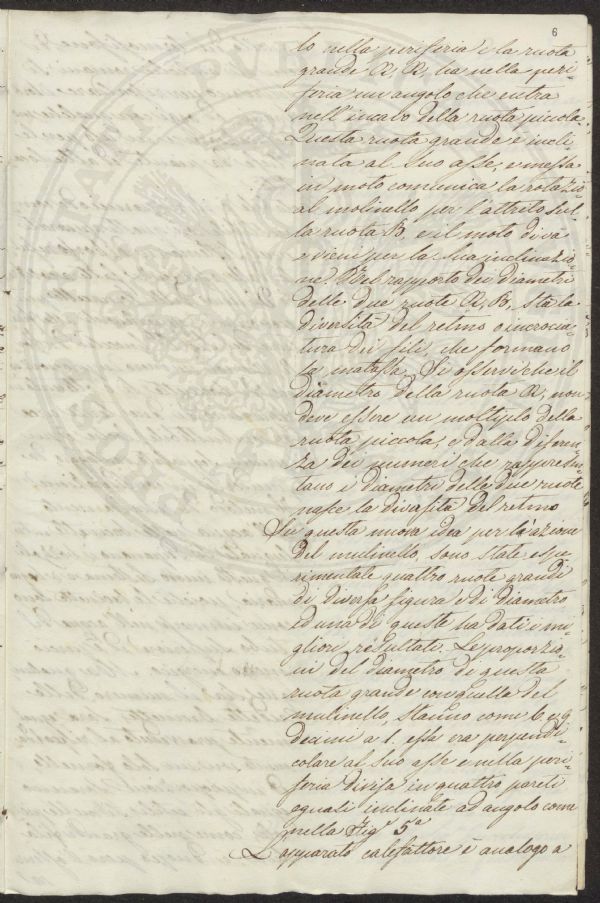 6
lo nella periferia e la ruota
grande A, A, ha nella peri
feria un angolo che entra
nell'incavo della ruota picola.
Questa ruota grande è incli
nata al suo asse, e messa
in moto comunica la rotazio
al molinello per l'attrito sul
la ruota B, e il moto di va
e vieni per la sua inclinazio
ne. Nel rapporto dei diametri
delle due ruote A, B, sta la
diversità del retino o incrocia
tura dei fili, che formano
la matassa. Si osservi che il
diametro della ruota A, non
deve essere un moltiplo della
ruota piccola, e dalla diferen
za dei numeri che rappresen
tano i diametri delle due ruote
nasce la diversità del retino
Su questa nuova idea per l'azione
del mulinello, sono state espe
rimentate quattro ruote grandi
di diversa figura e di diametro
ed una di queste ha dati i mi
gliori resultati. Le proporzio
ni del diametro di questa
ruota grande con quella del
mulinello, stanno come 6 e 9
decimi a 1. essa era perpendi
colare al suo asse e nella peri
feria divisa in quattro pareti
eguali inclinate ad angolo come
nella Fig.ª 5.ª
L'apparato calefattore è analogo a